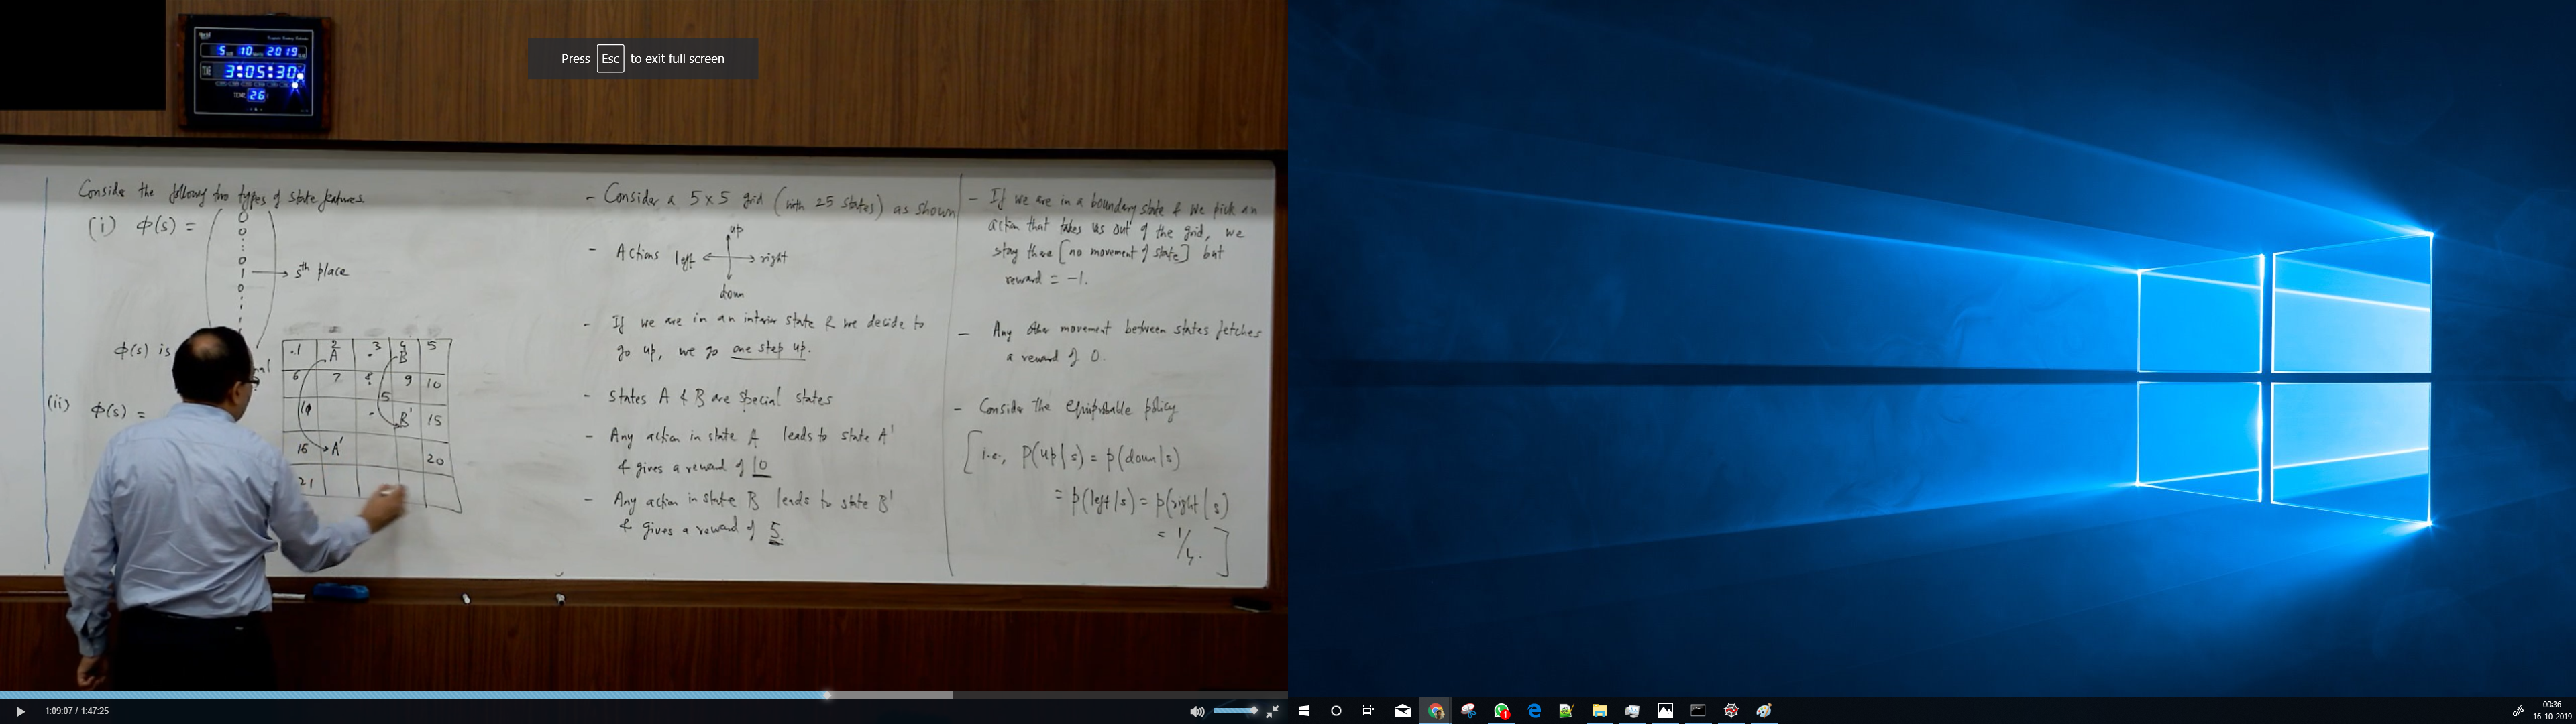 5 10 2019
TIME 3:05:30
26
Press Esc to exit full screen
Consider the following two types of state features
(i) φ(s) =
0
0
0
1 → sth place
0
φ(s) is
(ii) φ(s) =
.1 2 .3 4 5
A B
6 7 8 9 10
10 5
B' 15
16 A' 20
21
- Consider a 5×5 grid (with 25 states) as shown
- Actions
up
left right
down
- If we are in an interior state & we decide to
go up, we go one step up.
- States A & B are special states
- Any action in state A leads to state A'
& gives a reward of 10
- Any action in state B leads to state B'
& gives a reward of 5.
- If we are in a boundary state & we pick an
action that takes us out of the grid, we
stay there [no movement of state] but
reward = -1.
- Any other movement between states fetches
a reward of 0.
- Consider the equiprobable policy
[i.e., p(up|s) = p(down|s)
= p(left|s) = p(right|s)
= 1/4.]
1:09:07 / 1:47:25
00:36
16-10-2019